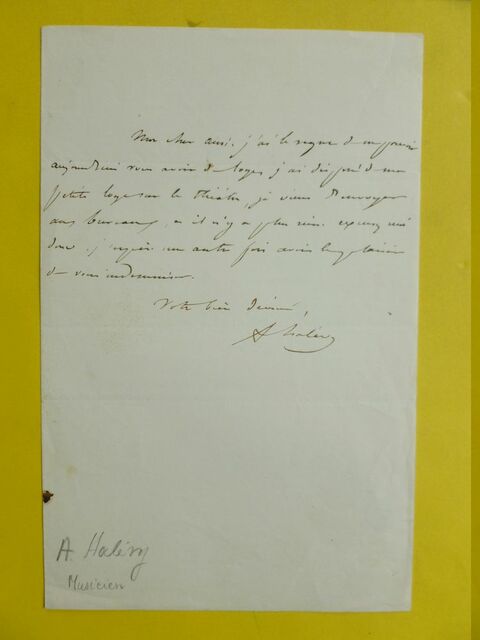 Mon cher ami. j'ai le regret de ne pouvoir
aujourd'hui vous avoir de loges, j'ai disposé de ma
petite loge sur le théâtre, je viens d'envoyer
aux bureaux, et il n'y a plus rien. excusez moi
donc. j'espère une autre fois avoir le plaisir
de vous indemniser.
Votre bien dévoué,
A Halévy
A. Halévy
Musicien